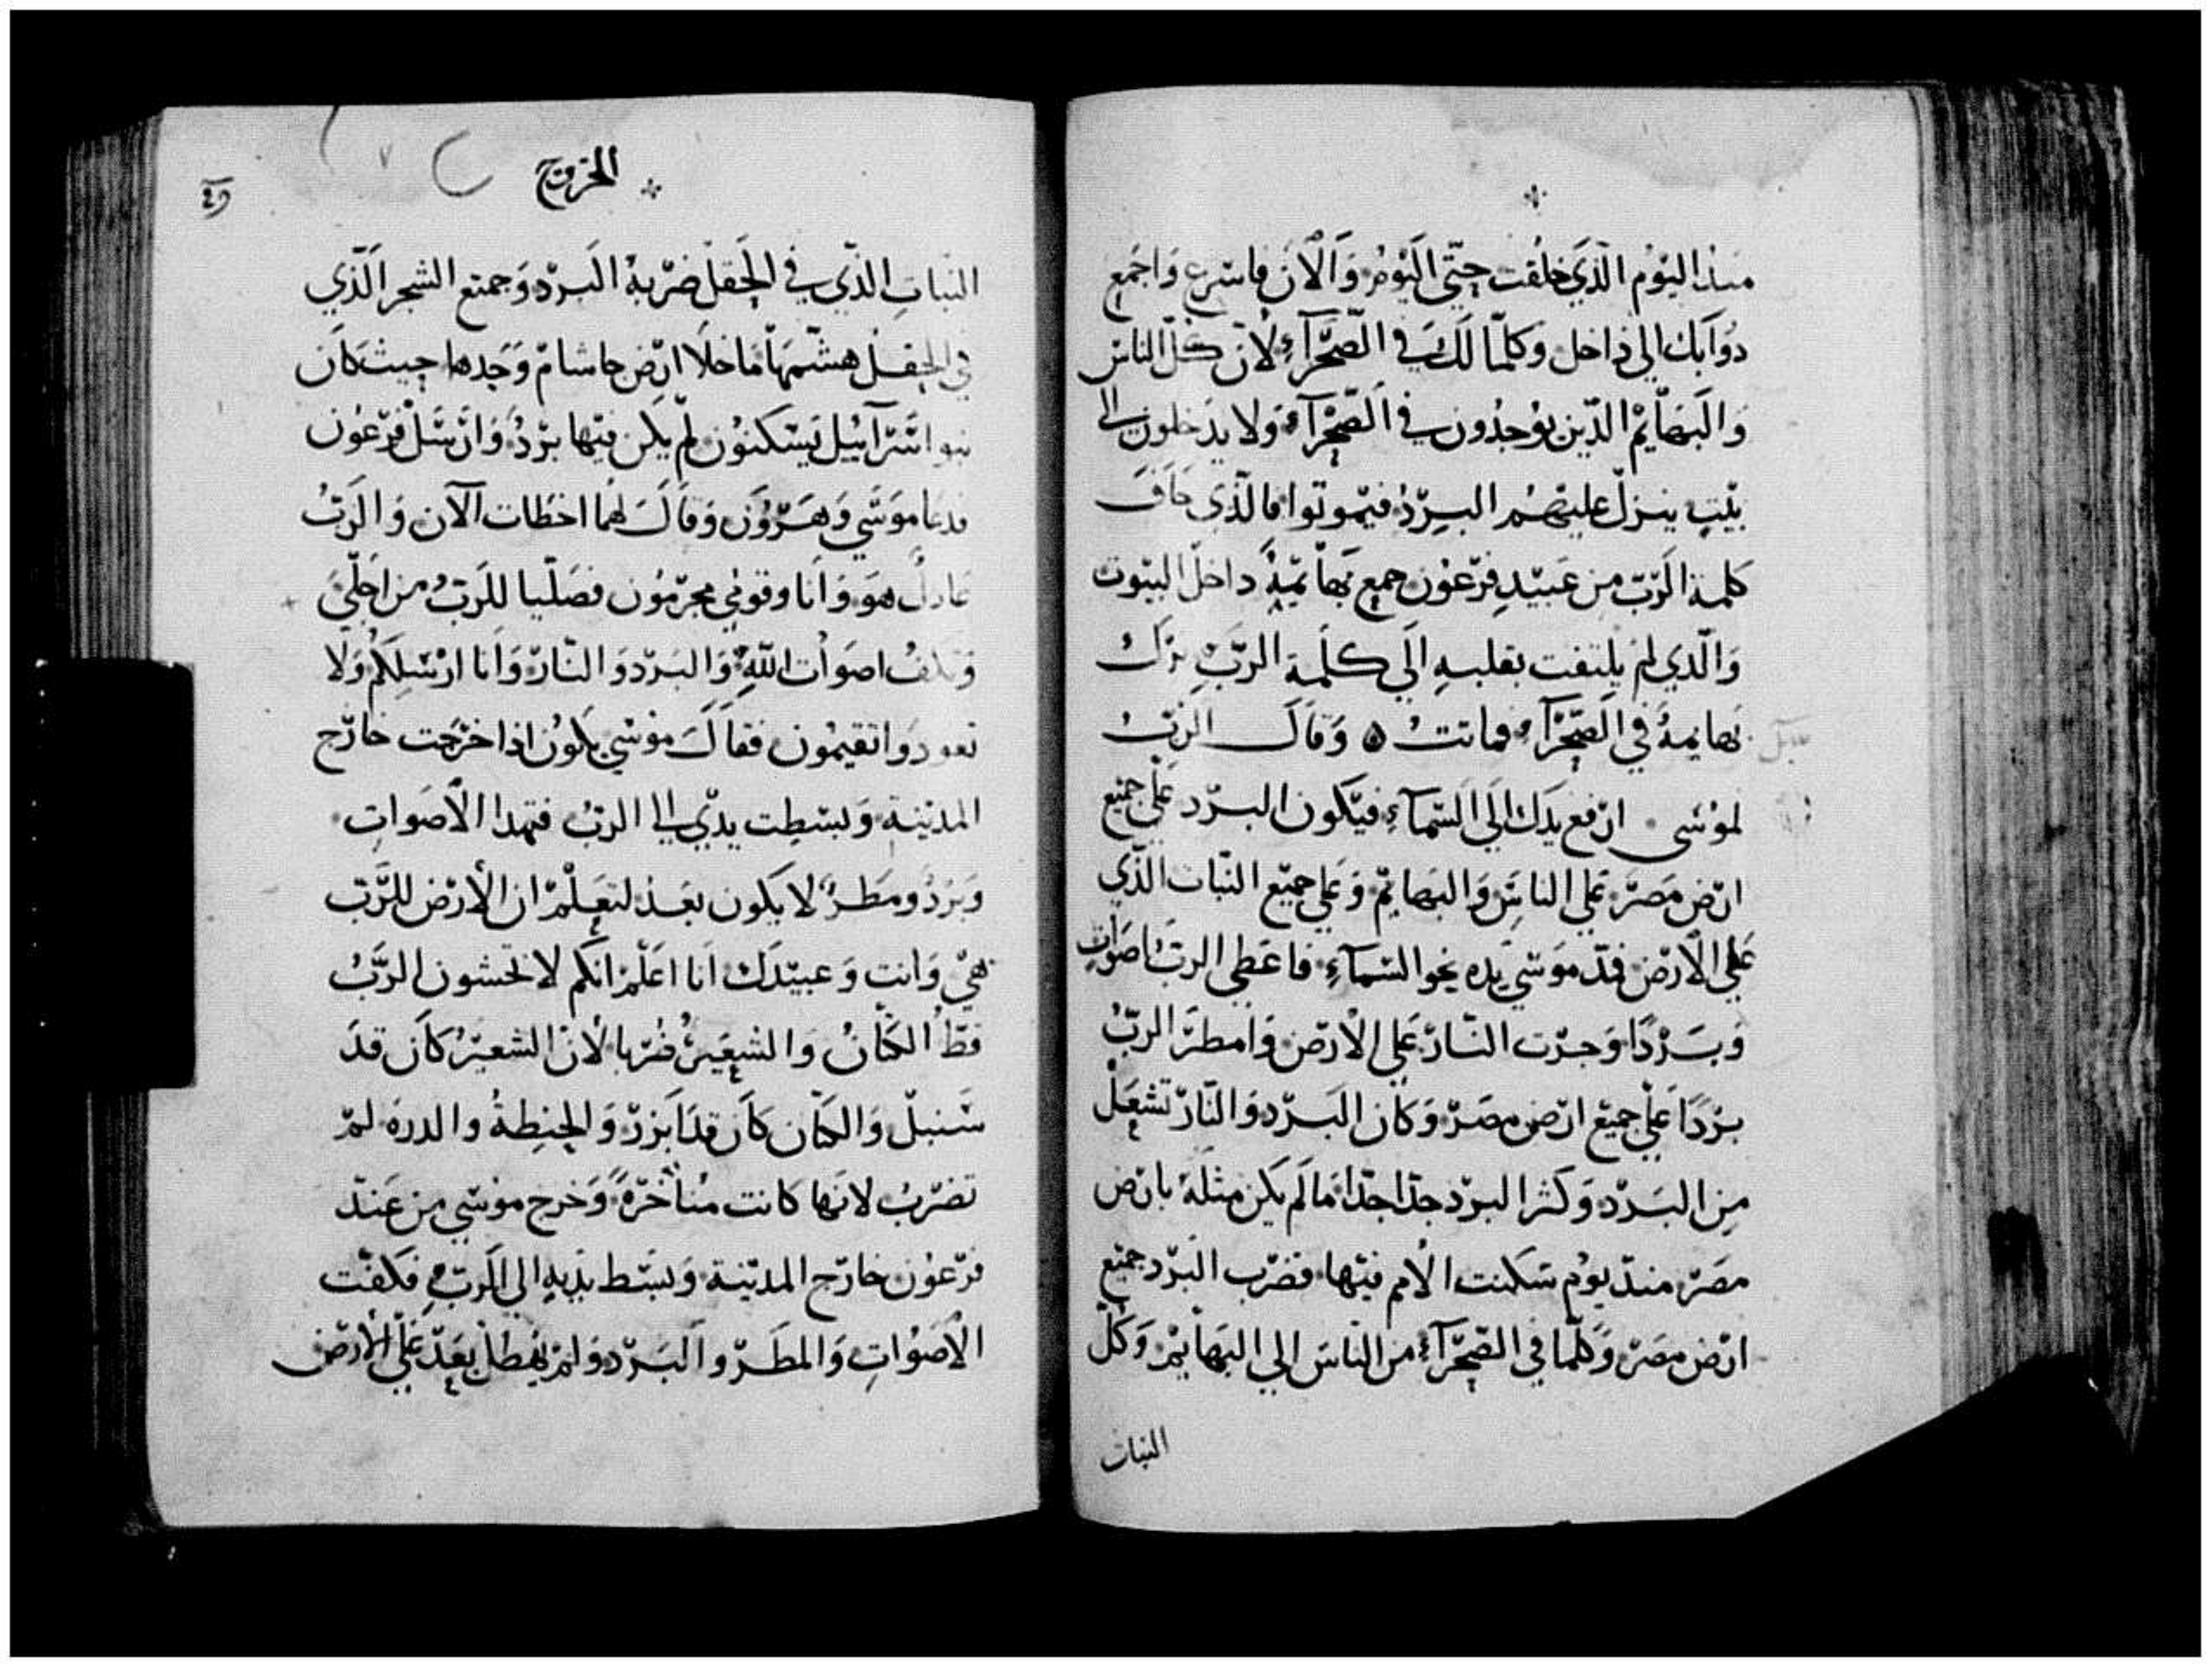 منذ اليوم الذي خلقت حتي اليوم والان فاسرع واجمع
دوابك الي داخل وكلما لك في الصحرآء لان كل الناس
والبهايم الذين يوجدون في الصحرآء ولا يدخلون الي
بيت ينزل عليهم البرد فيموتوا فالذي خاف
كلمة الرب من عبيد فرعون جمع بهايمه داخل البيوت
والذي لم يلتفت بقلبه الي كلمة الرب ترك
بهايمه في الصحرآء فماتت ۞ وقال الرب
لموسى ارفع يدك الي السمآء فيكون البرد علي جميع
ارض مصر علي الناس والبهايم وعلي جميع النبات الذي
علي الارض فمد موسي يده نحو السمآء فاعطي الرب اصوات
وبردا وجرت النار علي الارض وامطر الرب
بردا علي جميع ارض مصر وكان البرد والنار تشعل
من البرد وكثر البرد جدا جدا ما لم يكن مثله بارض
مصر منذ يوم سكنت الامم فيها فضرب البرد جميع
ارض مصر وكلما في الصحرآء من الناس الي البهايم وكل
النبات
الخروج
٤٩
النبات الذي في الحقل ضربه البرد وجميع الشجر الذي
في الحقل هشمها ما خلا ارض جاشام وحدها حيث كان
بنو اسرآئيل يسكنون لم يكن فيها برد وارسل فرعون
فدعا موسي وهرون وقال لهما اخطات الآن والرب
عادل هو وانا وقومي مجرمون فصليا للرب من اجلي
وتكف اصوات الله والبرد والنار وانا ارسلكم ولا
تعودوا تقيمون فقال موسي يكون اذا خرجت خارج
المدينة وبسطت يدي الي الرب فتهدا الاصوات
وبرد ومطر لا يكون بعد لتعلم ان الارض للرب
هي وانت وعبيدك انا اعلم انكم لا تخشون الرب
قط الكتان والشعير ضربا لان الشعير كان قد
سنبل والكتان كان قد ابزر والحنطة والدره لم
تضرب لانها كانت متأخرة وخرج موسي من عند
فرعون خارج المدينة وبسط يديه الي الرب فكفت
الاصوات والمطر والبرد ولم يهطل بعد علي الارض